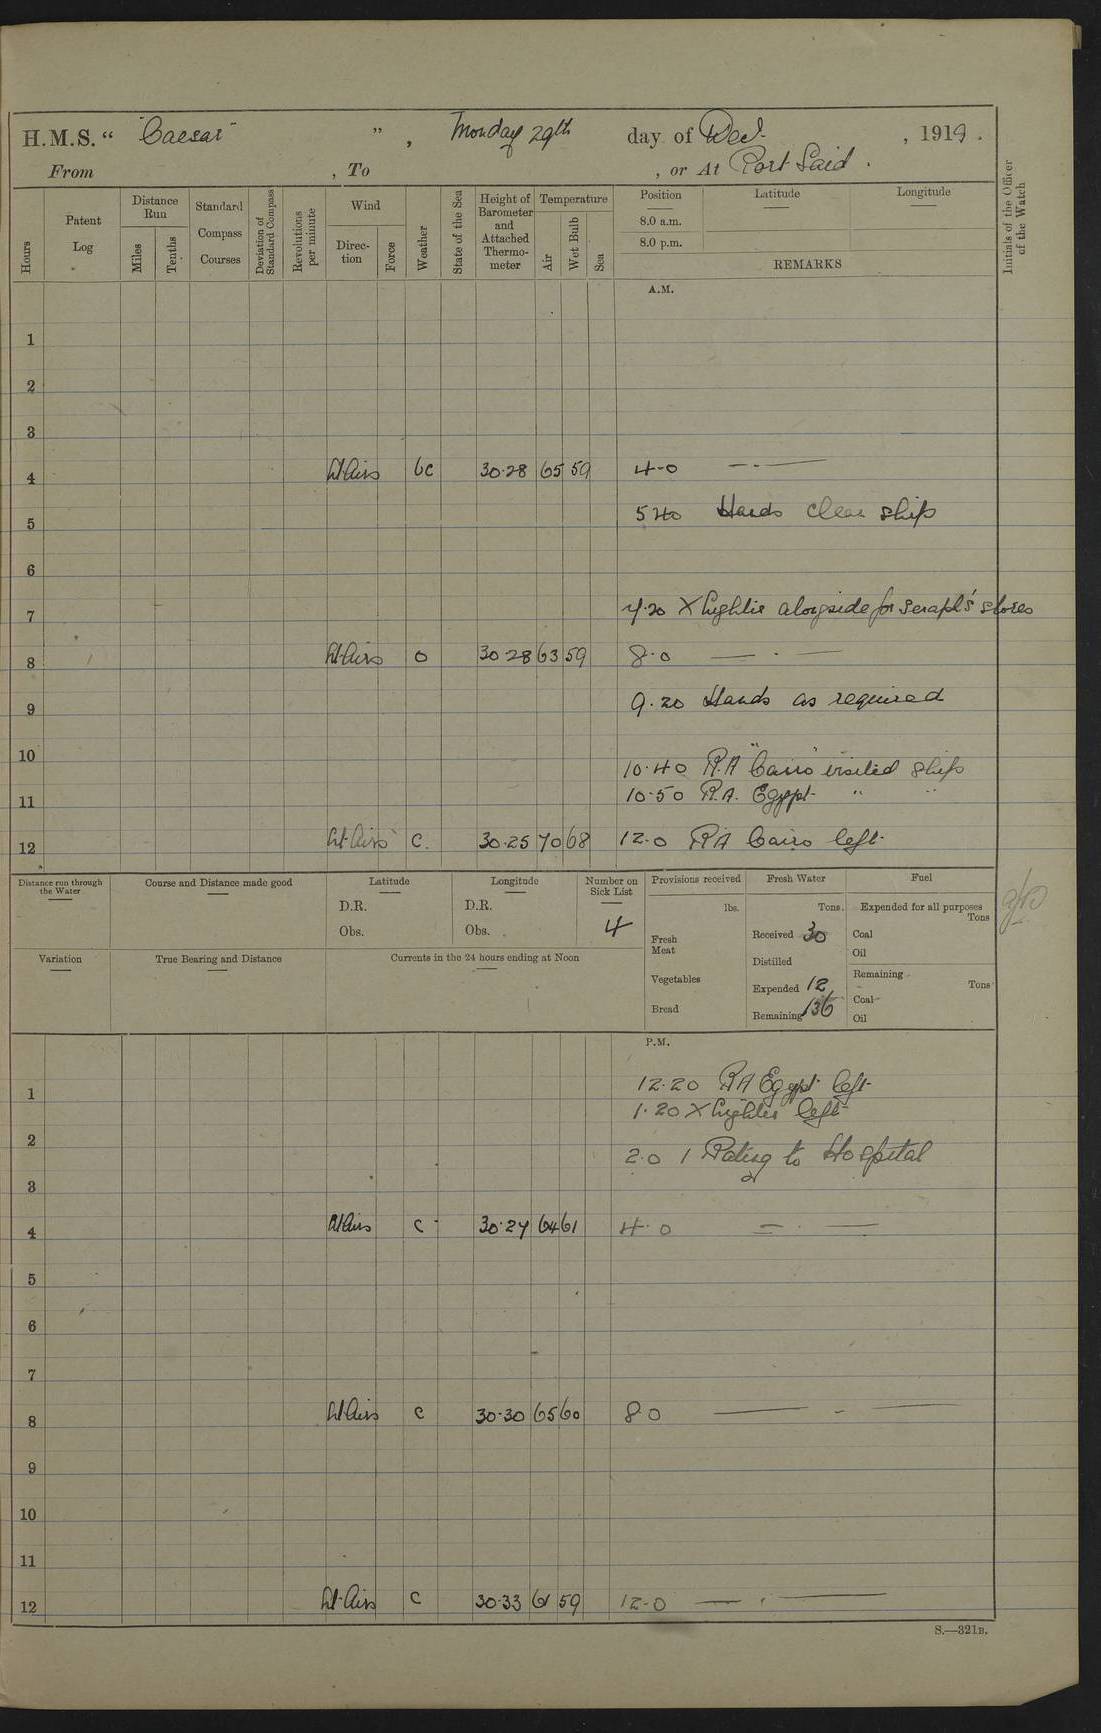 H.M.S. " "Caesar" ", Monday 29th day of Decr. , 1919.
From , To , or At Port Said.
Hours
Patent Log
Distance Run
Miles
Tenths
Standard Compass Courses
Deviation of Standard Compass
Revolutions per minute
Wind
Direction
Force
Weather
State of the Sea
Height of Barometer and Attached Thermometer
Temperature
Air
Wet Bulb
Sea
Position
Latitude
Longitude
8.0 a.m.
8.0 p.m.
REMARKS
Initials of the Officer of the Watch
A.M.
1
2
3
4 Lt Airs bc 30·28 65 59 4-0
5 5 40 Hands clean ship
6
7 7·20 X Lighter alongside for Seraph's stores
8 Lt Airs o 30·28 63 59 8·0
9 9·20 Hands as required
10 10·40 R.A "Cairo" visited ship
11 10·50 R.A. Egypt " "
12 Lt Airs c. 30·25 70 68 12·0 RA Cairo left
Distance run through the Water
Course and Distance made good
Latitude
D.R.
Obs.
Longitude
D.R.
Obs.
Number on Sick List
4
Provisions received
lbs.
Fresh Meat
Vegetables
Bread
Fresh Water
Tons.
Received 30
Distilled
Expended 12
Remaining 136
Fuel
Expended for all purposes
Tons
Coal
Oil
Remaining
Tons
Coal
Oil
Variation
True Bearing and Distance
Currents in the 24 hours ending at Noon
P.M.
12·20 RA Egypt left
1 1·20 X Lighter left
2 2·0 1 Rating to Hospital
3
4 Lt Airs c 30·27 64 61 4·0
5
6
7
8 Lt Airs c 30·30 65 60 8 0
9
10
11
12 Lt Airs c 30·33 61 59 12-0
S.—321B.